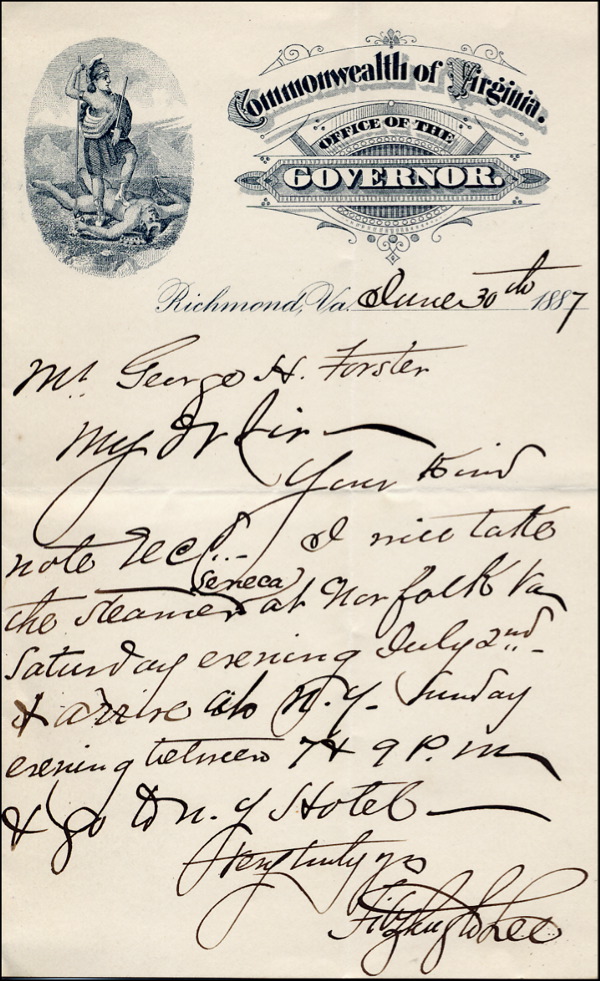 Commonwealth of Virginia.
OFFICE OF THE
GOVERNOR.
Richmond, Va. June 30th 1887
Mr. George H. Forster
My Dr Sir—
Your kind
note recd... I will take
(Seneca)
the steamer at Norfolk Va
Saturday evening July 2nd.
& arrive at N.Y. Sunday
evening between 7 & 9 P.M
& go to N.Y Hotel—
Very truly yrs
Fitzhugh Lee